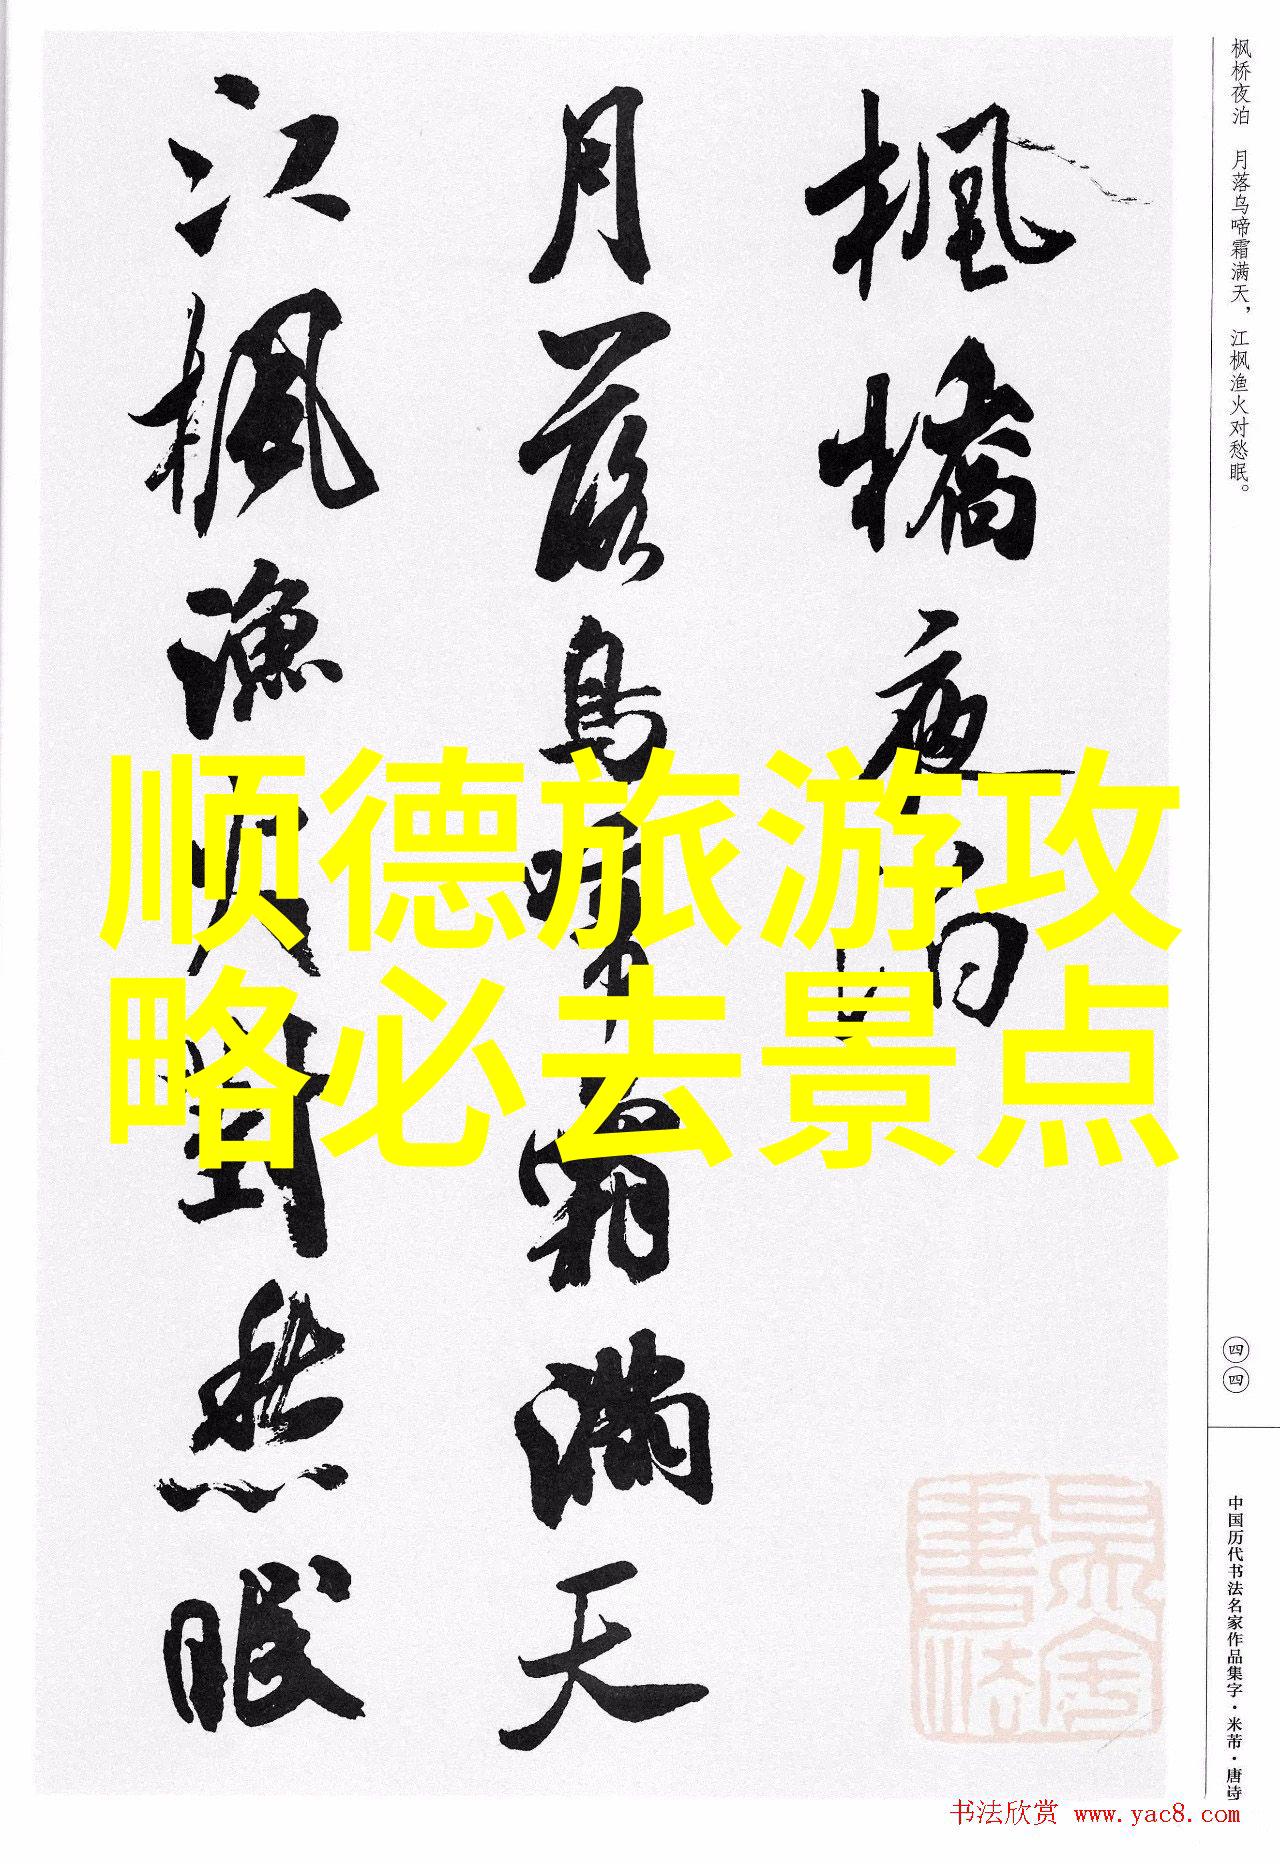 枫桥夜泊 月落乌啼霜满天，江枫渔火对愁眠。
楓橋夜泊
月落烏啼霜滿天
江楓漁火對愁眠
顺德旅游攻
略必去景点
四四
中国历代书法名家作品集字·米芾·唐诗
书法欣赏 www.yac8.com